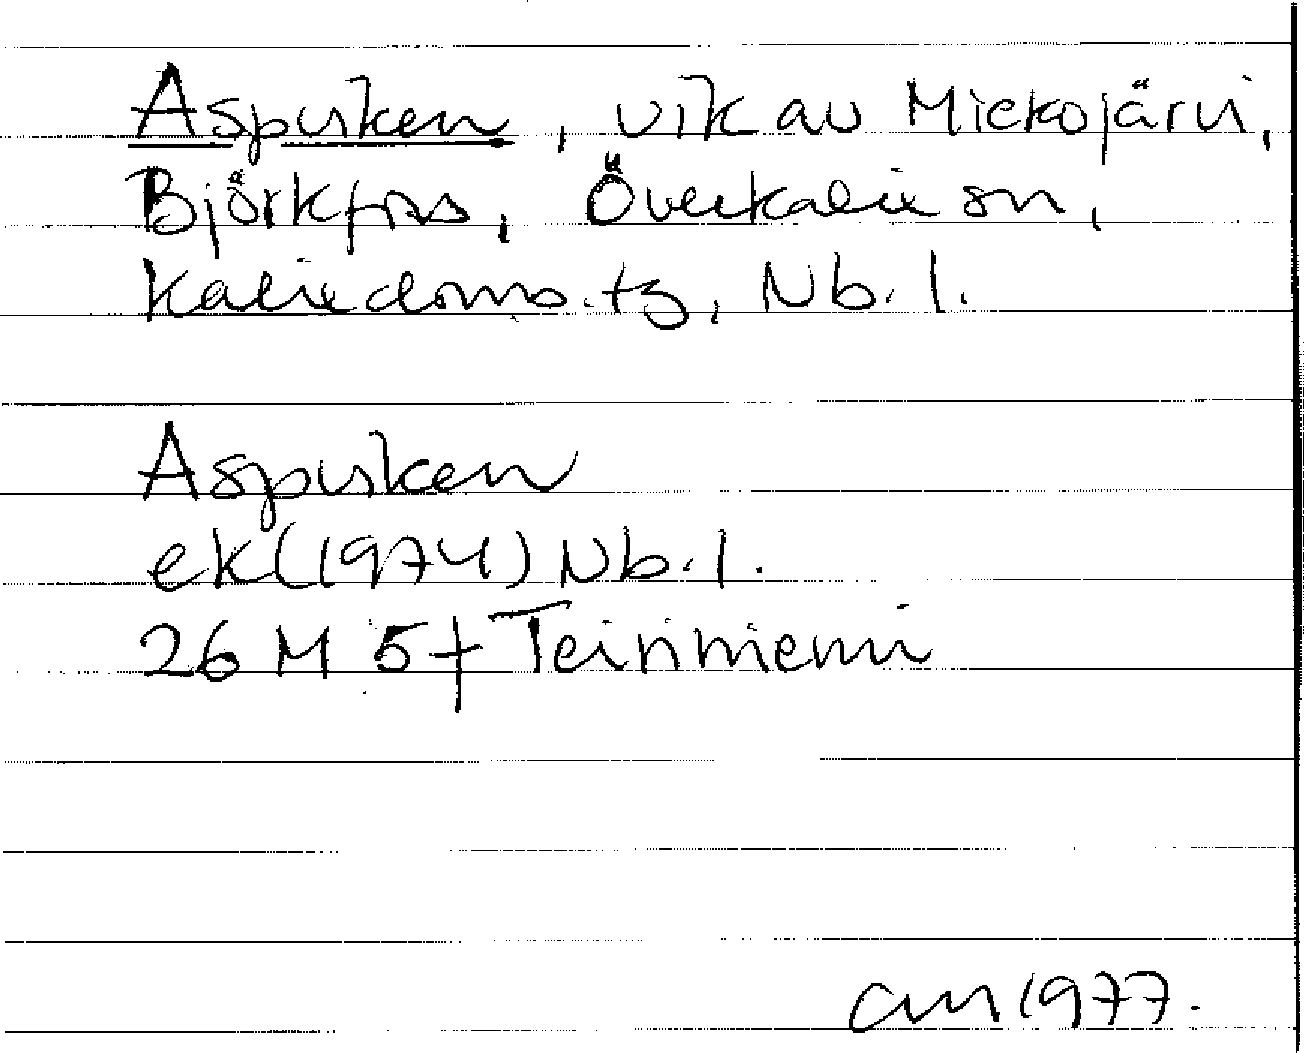 Aspviken, vik av Miekojärvi,
Björkfors, Överkalix sn,
Kalix doms. tg, Nb. l.
Aspviken
ek (1974) Nb. l.
26 M 5f Teiriniemi
1977.